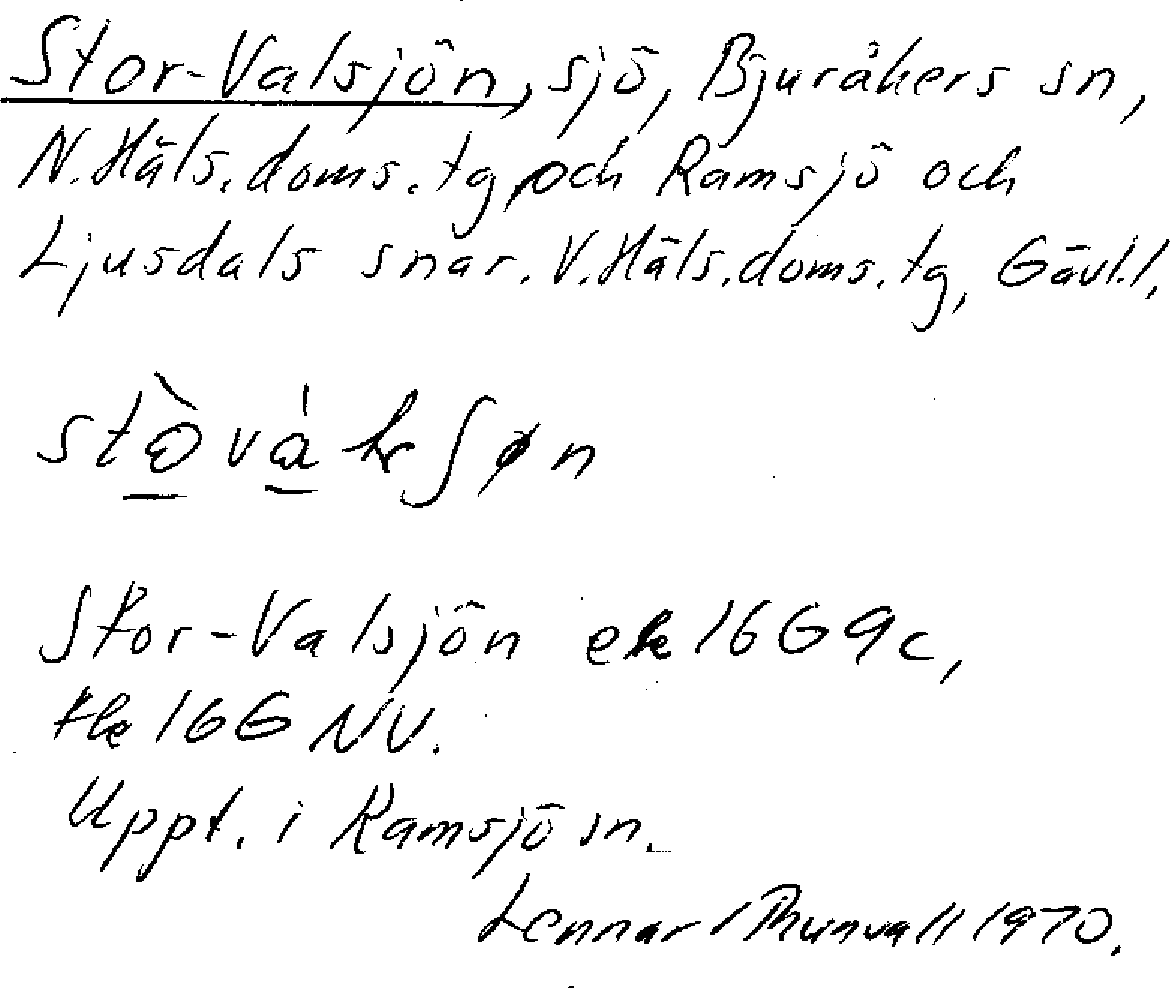 Stor-Valsjön, sjö, Bjuråkers sn,
N. Häls. doms. tg, och Ramsjö och
Ljusdals snar. V. Häls. doms. tg, Gävl. l.
Stor-Valsjön ek 16G 9c,
tk 16G NV.
Uppt. i Ramsjö sn.
Lennart Thunvall 1970.